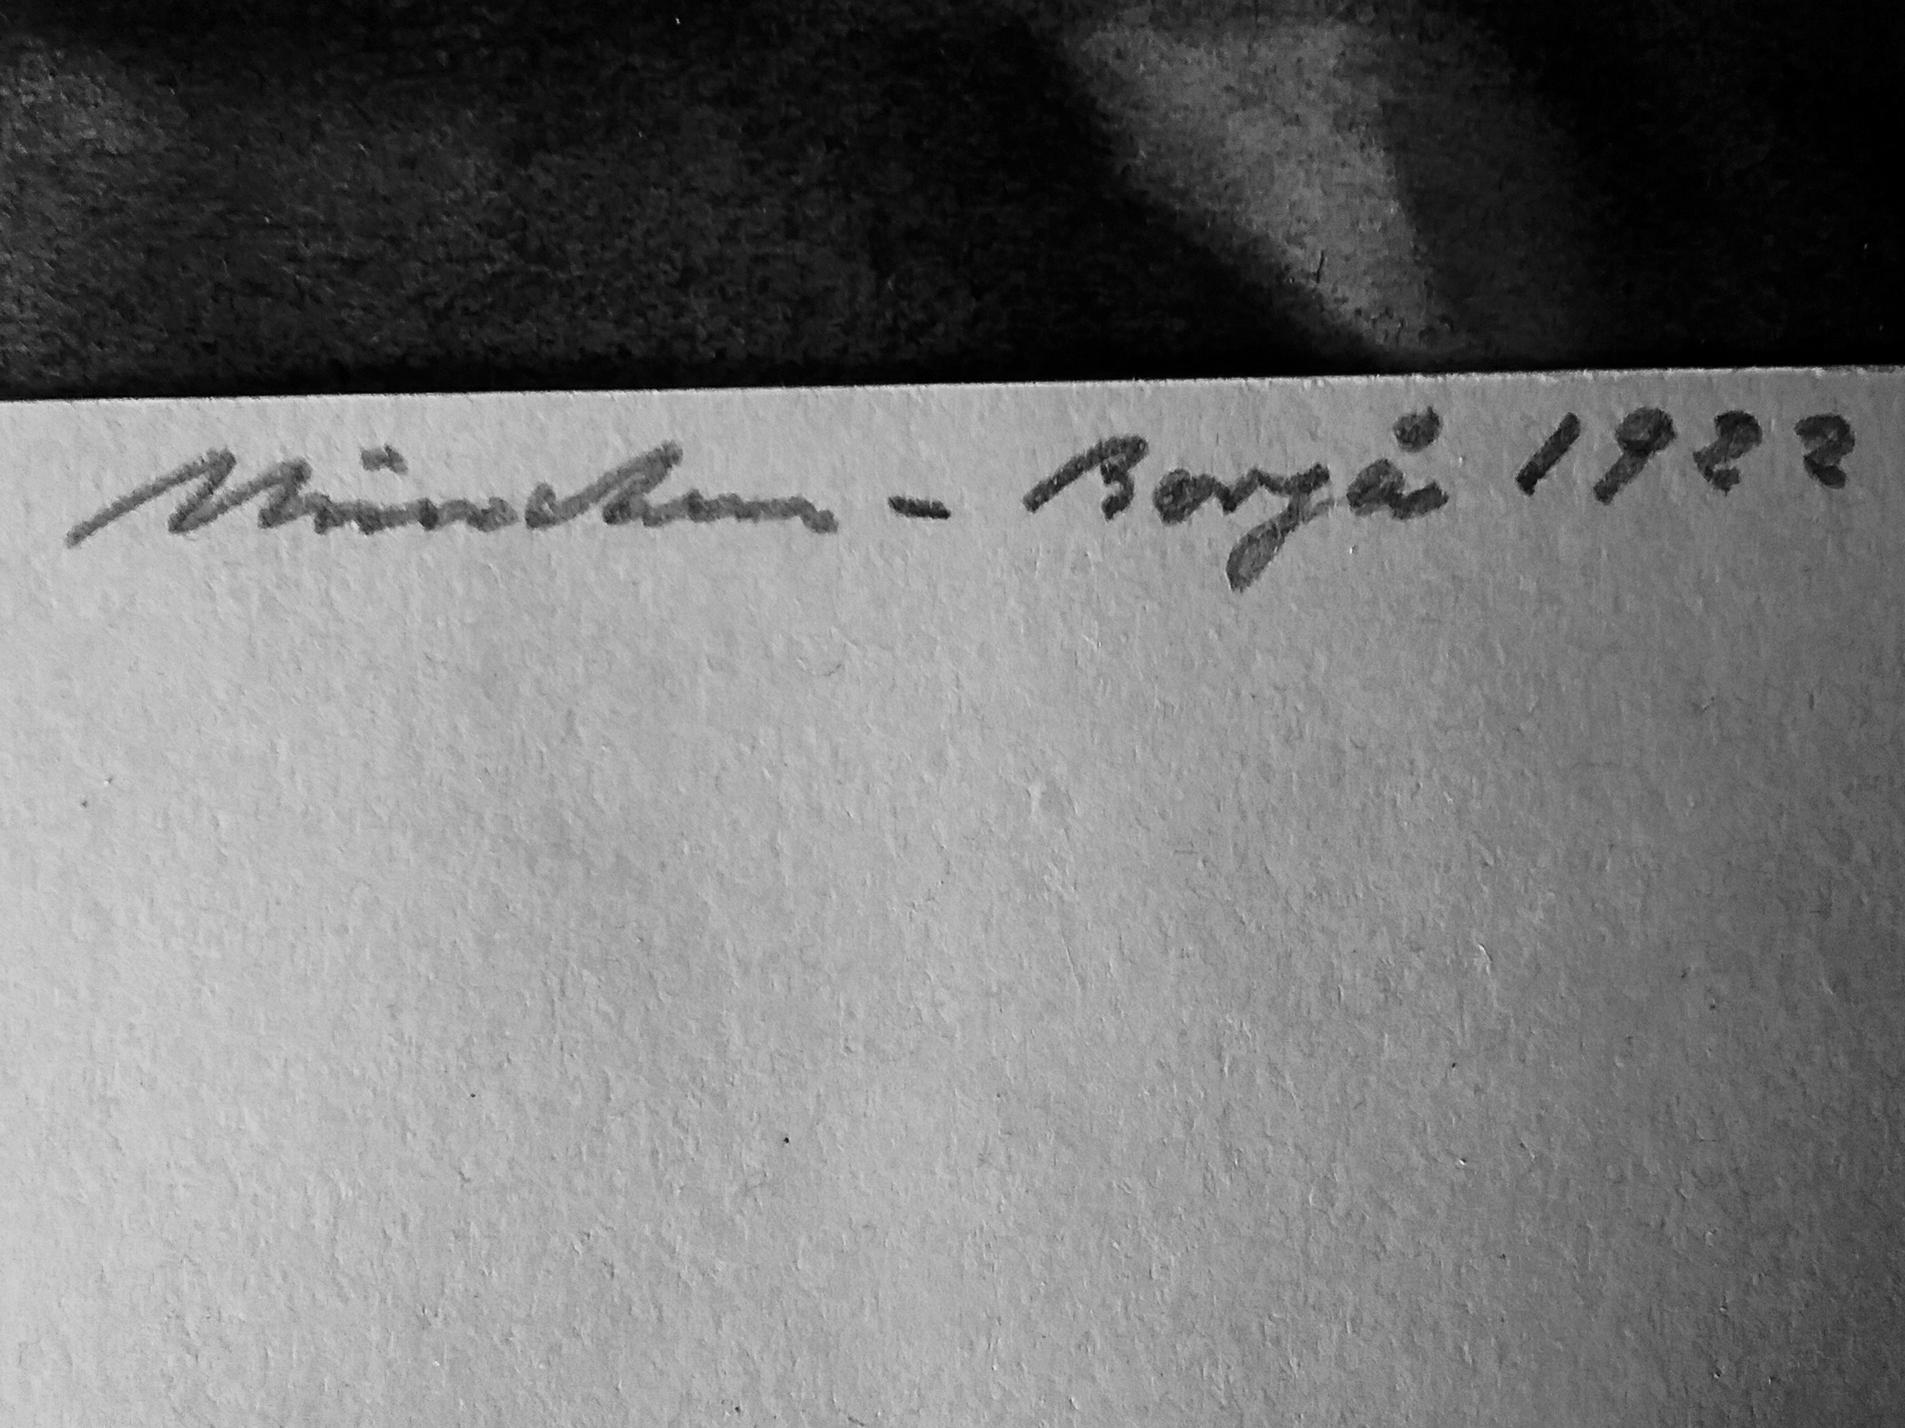 München - Borgå 1922